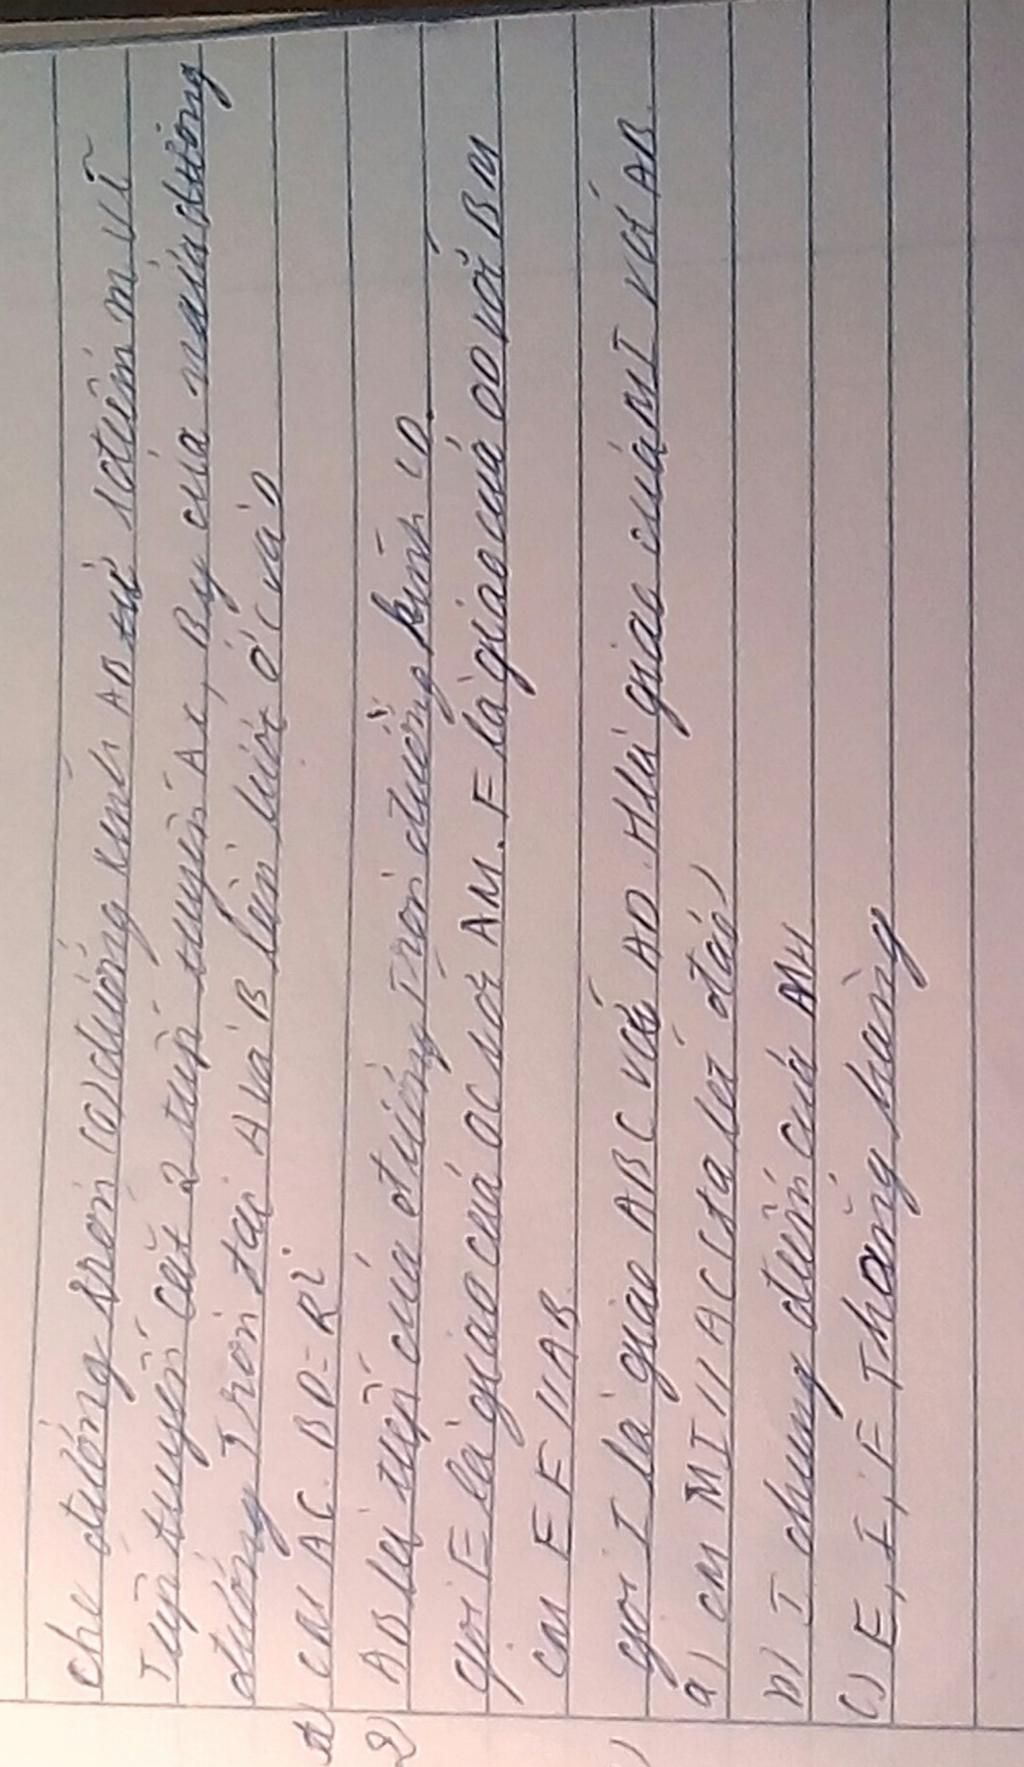 cho đường tròn (O) đường kính AB từ 1 điểm M vẽ
Tiếp tuyến cắt 2 tiếp tuyến Ax, By của nửa đường
đường Tròn tại A và B lần lượt ở C và D
1) CM AC. BD = R²
2) AB là tiếp của đường Tròn đường kính CD.
Gọi E là giao của OC với AM. F là giao của OD với BM
CM EF // AB.
Gọi I là giao BC và AD. H là giao của MI với AB.
a) CM MI // AC (Ta lét đảo)
b) I chung điểm của MH
c) E, I, F Thẳng hàng